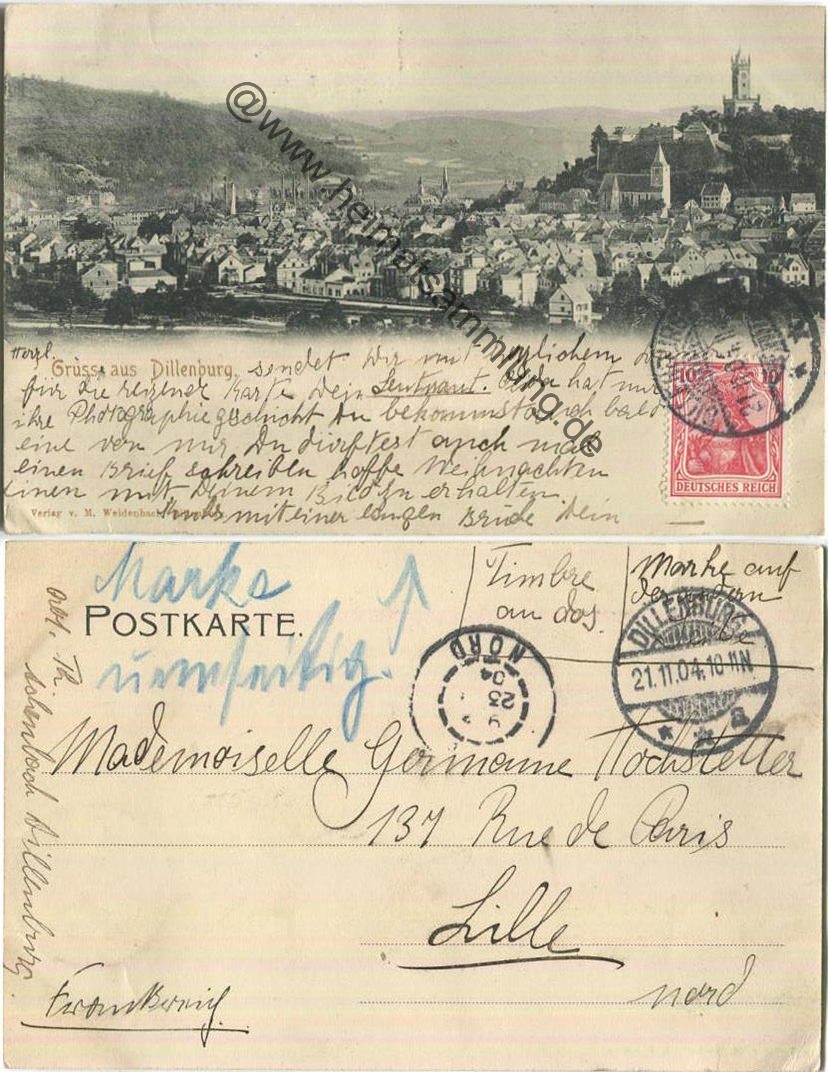 @www.heimatsammlung.de
Herzl.
Grüss aus Dillenburg. sendet Dir mit
für die reizende Karte Dein Leutnant. hat mir
ihre Photographie geschickt Du bekommst auch bald
eine von mir. Du dürftest auch mal
einen Brief schreiben hoffe Weihnachten
einen mit Deinem zu erhalten.
Verlag v. M. Weidenbach,
mit einer langen Dein
10 10
DEUTSCHES REICH
Marke
umseitig.
POSTKARTE.
Timbre
au dos.
Marke auf
der andern
NORD
23
04
DILLENBURG
21.11.04.10-11N
* * a
Mademoiselle Germaine Hochstetter
137 Rue de Paris
Lille
Nord
Frankreich
Dillenburg